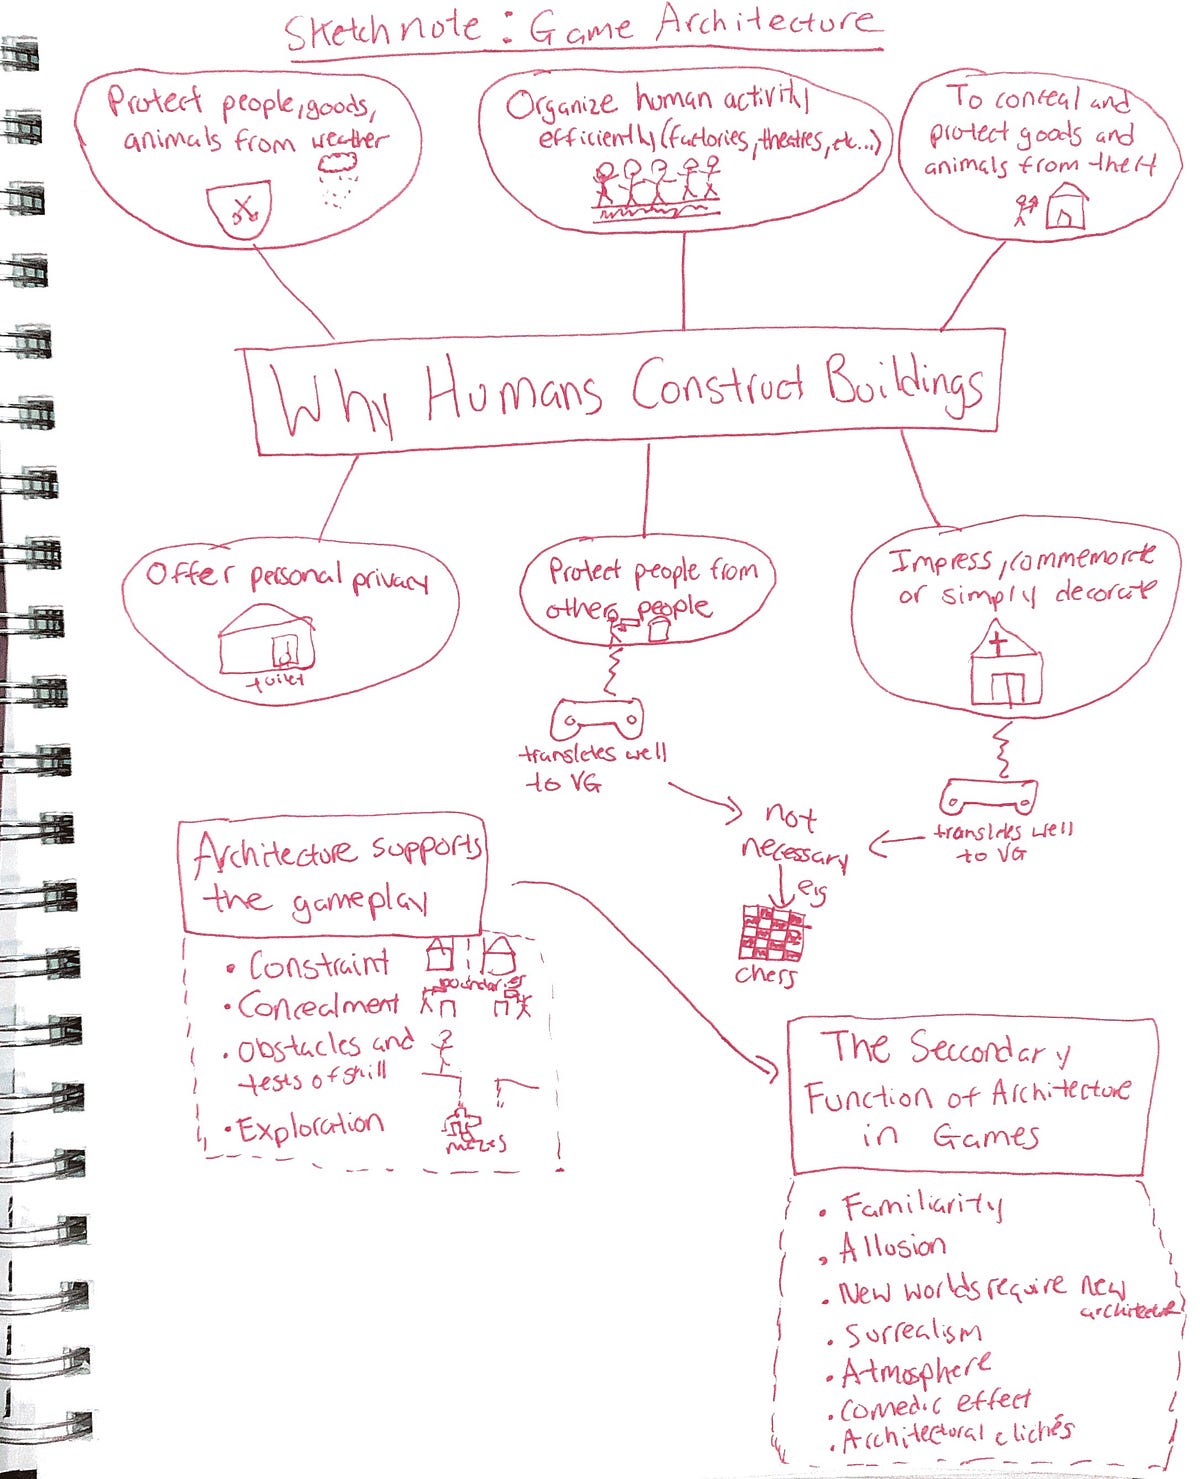 Sketchnote: Game Architecture
Protect people, goods,
animals from weather
Organize human activity
efficiently (factories, theatres, etc...)
To conceal and
protect goods and
animals from theft
Why Humans Construct Buildings
Offer personal privacy
toilet
Protect people from
others people
translates well
to VG
Impress, commemorate
or simply decorate
translates well
to VG
not
necessary
eg
chess
Architecture supports
the gameplay
• Constraint
boundaries
• Concealment
• Obstacles and
tests of skill
• Exploration
mazes
The Seccondary
Function of Architecture
in Games
• Familiarity
• Allusion
• New worlds require new
architecture
• Surrealism
• Atmosphere
• Comedic effect
• Architectural clichés